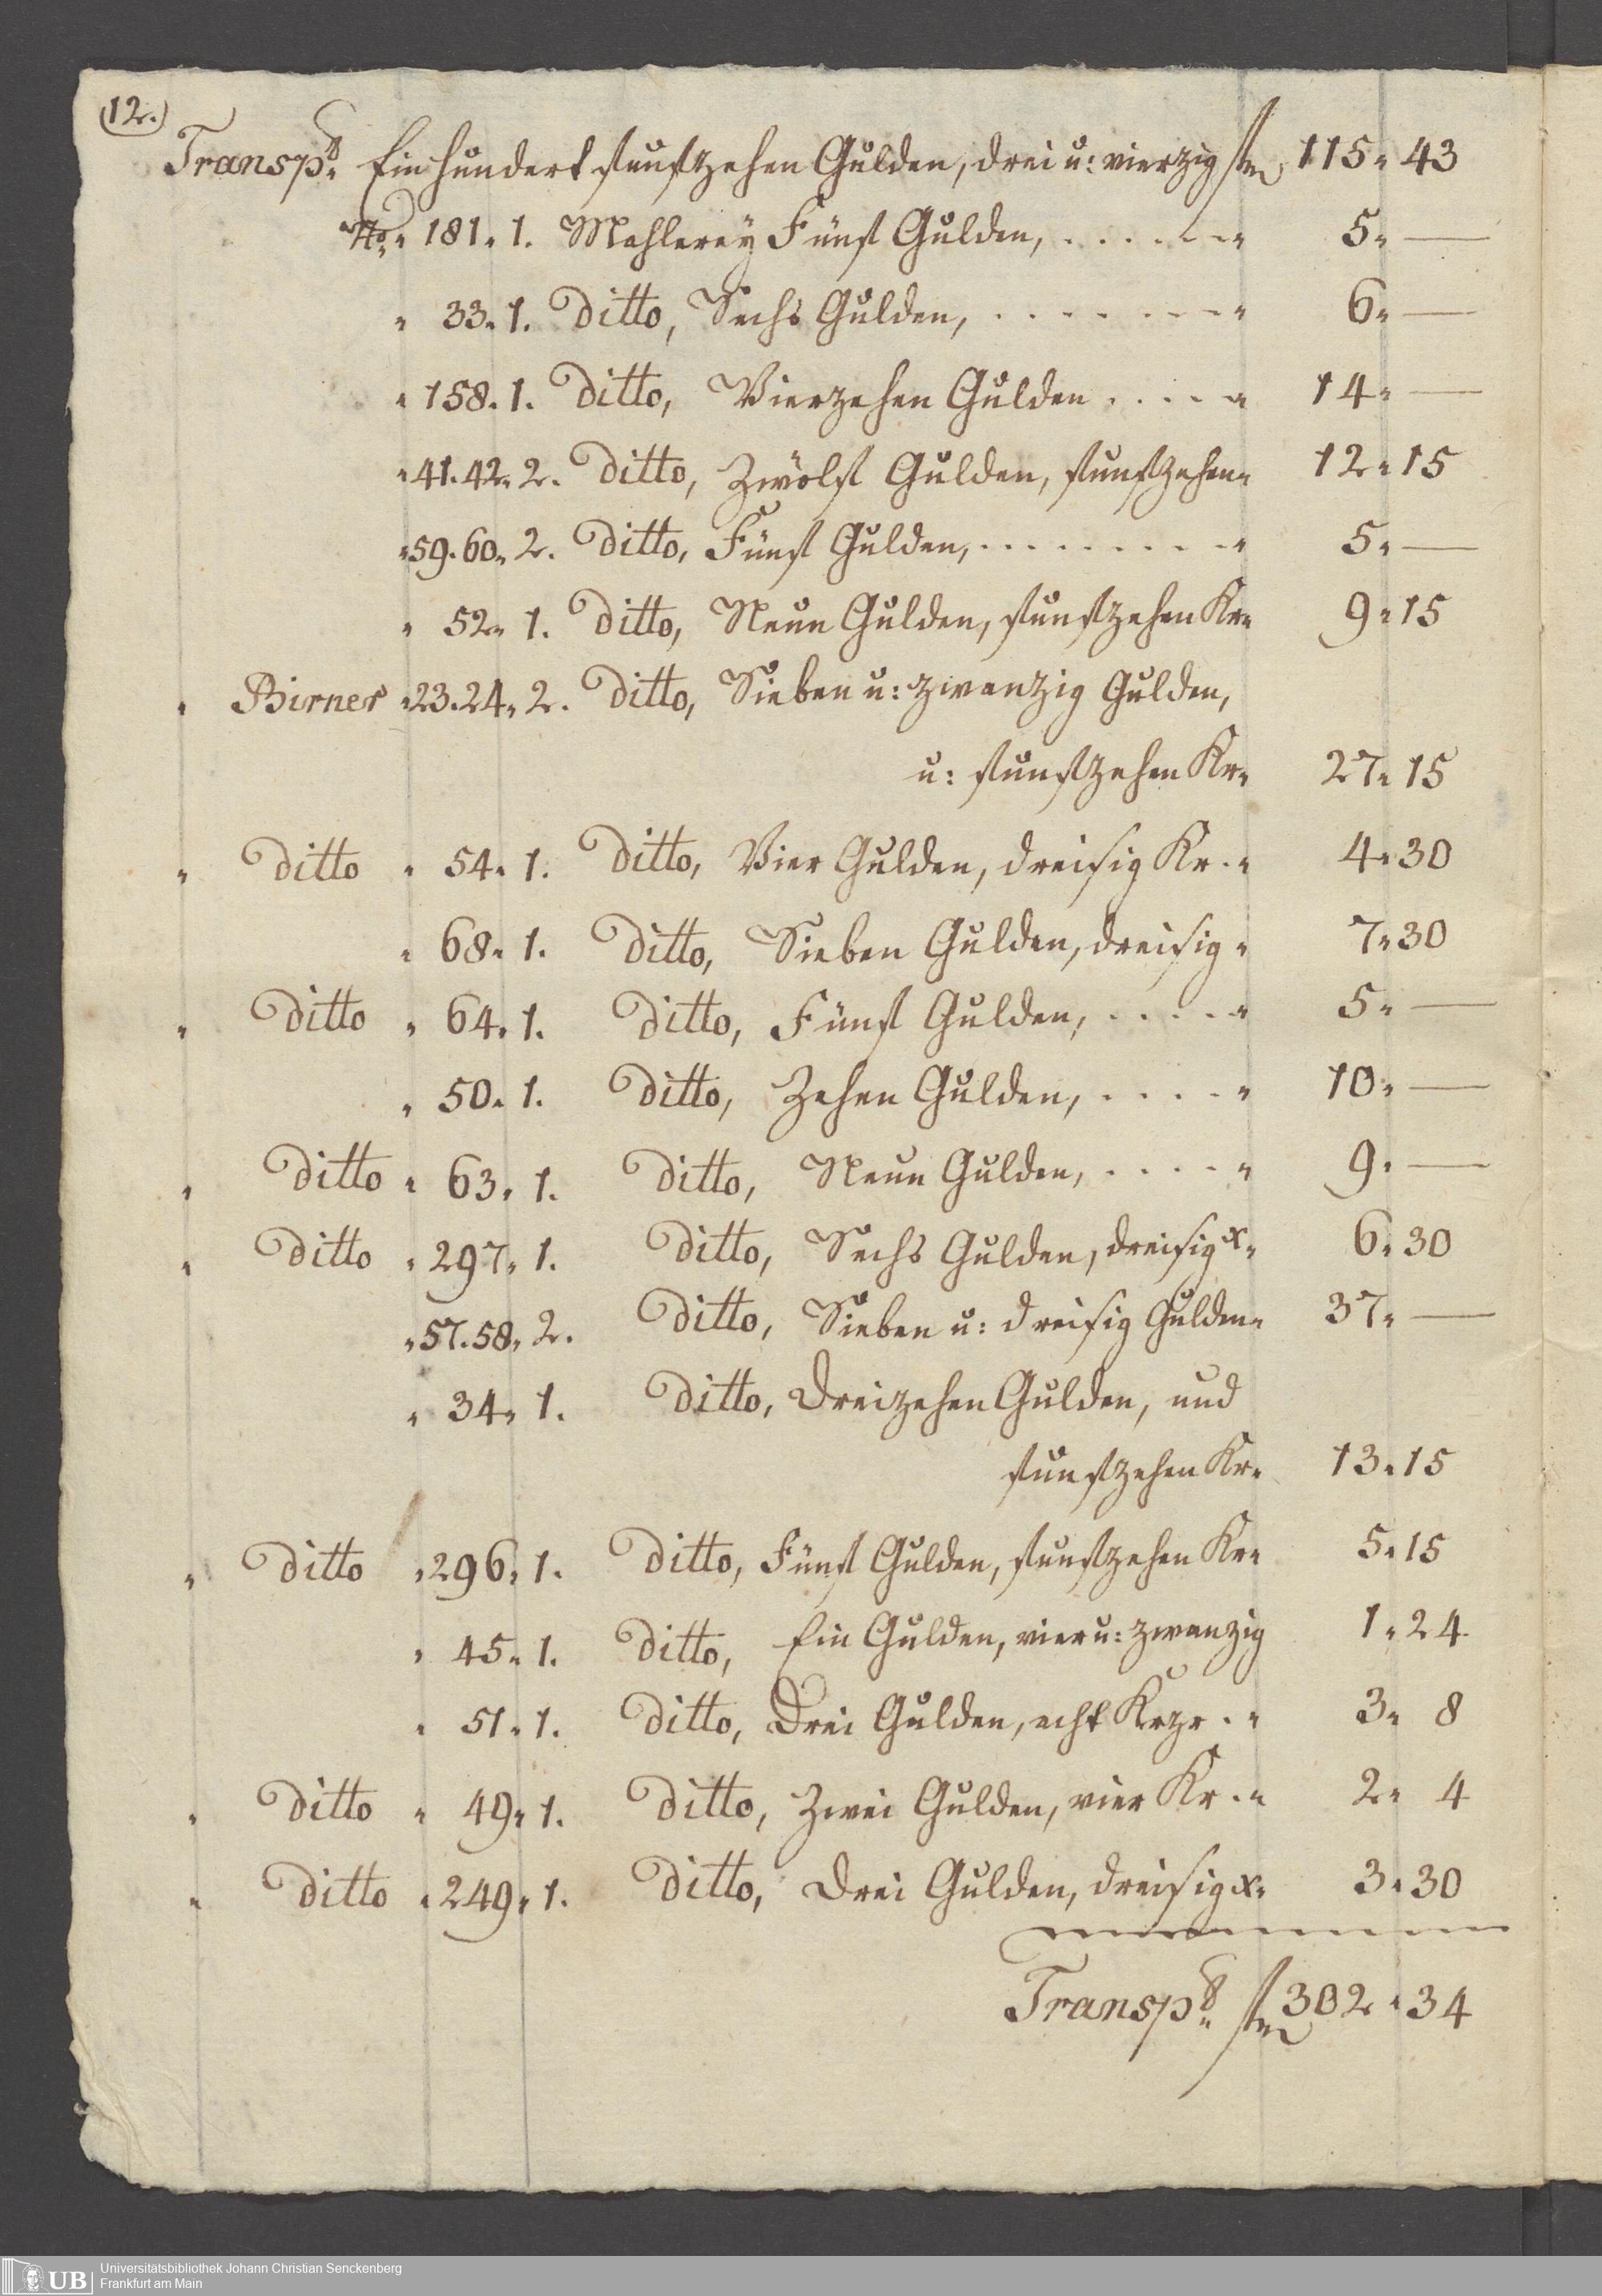 12.
Transp. Einhundert funfzehen Gulden, drei u: vierzig f 115 " 43
No. " 181 " 1. Mahlerey Fünf Gulden, . . . . . . " 5 " —
" 33 " 1. Ditto, Sechs Gulden, . . . . . . . . " 6 " —
" 158. 1. Ditto, Vierzehen Gulden . . . . " 14 " —
" 41. 42 " 2. Ditto, Zwölf Gulden, funfzehen " 12 " 15
" 59. 60 " 2. Ditto, Fünf Gulden, . . . . . . . . . " 5 " —
" 52 " 1. Ditto, Neun Gulden, funfzehen Kr " 9 " 15
" Birner " 23. 24 " 2. Ditto, Sieben u: zwanzig Gulden,
u: funfzehen Kr " 27 " 15
" Ditto " 54 " 1. Ditto, Vier Gulden, dreisig Kr . " 4 " 30
" 68 " 1. Ditto, Sieben Gulden, dreisig " 7 " 30
" Ditto " 64 " 1. Ditto, Fünf Gulden, . . . . . " 5 " —
" 50 " 1. Ditto, Zehen Gulden, . . . . . " 10 " —
" Ditto " 63 " 1. Ditto, Neun Gulden, . . . . . " 9 " —
" Ditto " 297 " 1. Ditto, Sechs Gulden, dreisig x " 6 " 30
" 57. 58 " 2. Ditto, Sieben u: dreisig Gulden " 37 " —
" 34 " 1. Ditto, Dreizehen Gulden, und
funfzehen Kr " 13 " 15
" Ditto " 296 " 1. Ditto, Fünf Gulden, funfzehen Kr " 5 " 15
" 45 " 1. Ditto, Ein Gulden, vier u: zwanzig 1 " 24
" 51 " 1. Ditto, Drei Gulden, acht Krzr . " 3 " 8
" Ditto " 49 " 1. Ditto, Zwei Gulden, vier Kr . " 2 " 4
" Ditto " 249 " 1. Ditto, Drei Gulden, dreisig x " 3 " 30
Transp. f 302 " 34
UB Universitätsbibliothek Johann Christian Senckenberg
Frankfurt am Main